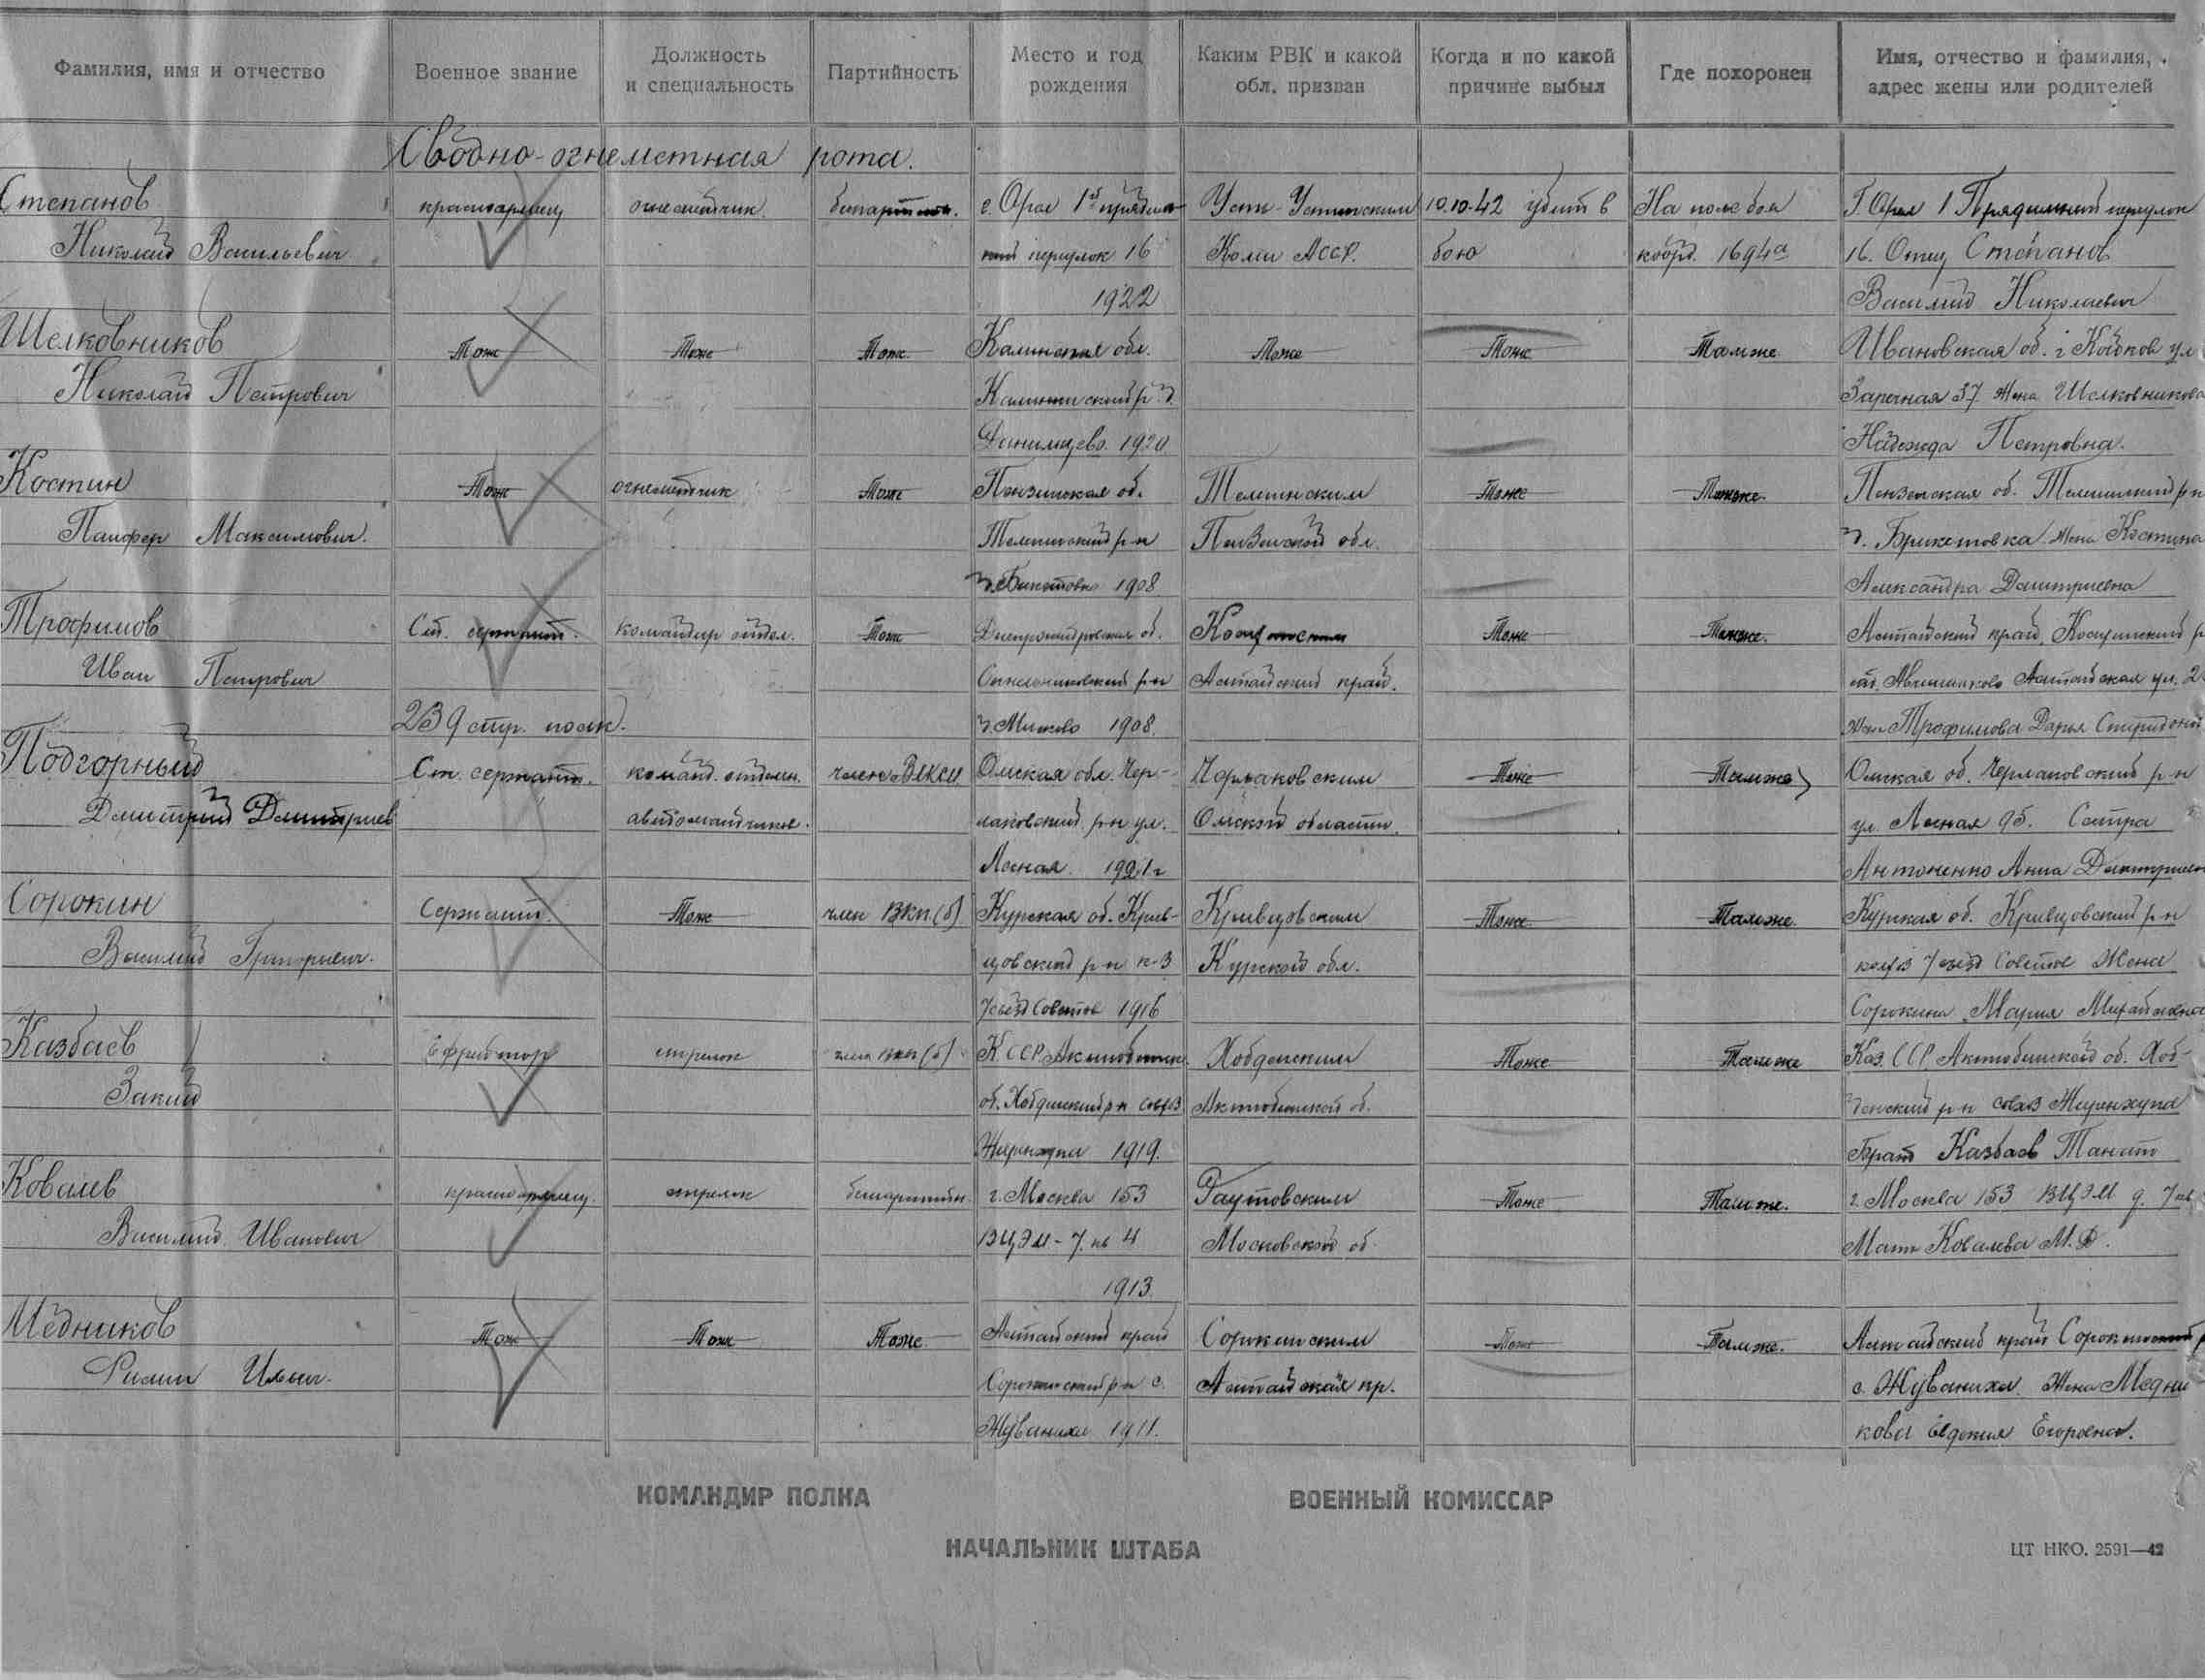 Фамилия, имя и отчество
Военное звание
Должность
и специальность
Партийность
Место и год
рождения
Каким РВК и какой
обл. призван
Когда и по какой
причине выбыл
Где похоронен
Имя, отчество и фамилия,
адрес жены или родителей
Сводно-огнеметная рота.
Степанов
Николай Васильевич
красноармеец
огнеметчик
беспартийн.
г. Орел 1й прядиль-
ный переулок 16
1922
Усть-Устинским
Коми АССР.
10.10.42 убит в
бою
На поле боя
коорд. 1694а
Г. Орел 1 Прядильный переулок
16. Отец Степанов
Василий Николаевич
Шелковников
Николай Петрович
Тоже
Тоже
Тоже
Калинская обл.
Калининский р. д.
Данильцево. 1920
Тоже
Тоже
Тамже
Ивановская об. г. ул
Заречная 37 Жена Шелковникова
Надежда Петровна.
Костин
Панфер Максимович.
Тоже
огнеметчик
Тоже
Пензинская об.
р-н
1908
Пензенской обл.
Тоже
Тамже.
Пензенская об. р-н
д. Брикетовка Жена Костина
Александра Дмитриевна
Трофимов
Иван Петрович
Ст. сержант.
командир отдел.
Тоже
Днепропетровская об.
Синельниковский р-н
1908.
Алтайский край.
Тоже
Тамже.
Алтайский край, р
Алтайская ул. 2
Трофимова Дарья Спиридон
239 стр. полк.
Подгорный
Дмитрий Дмитриев
Ст. сержант.
команд. отделен.
автоматчиков.
член ВЛКСМ
Омская обл. Чер-
лаковский р-н ул.
Лесная 1921г
Черлаковским
Омской области.
Тоже
Тамже
Омская об. Черлаковский р-н
ул. Лесная 95. Сестра
Антоненко Анна Дмитриевн
Сорокин
Василий Григорьевич.
Сержант.
Тоже
член ВКП(б)
Курская об. Крив-
цовский р-н к-з
7 съезд Советов 1916
Кривцовским
Курской обл.
Тоже
Тамже.
Курская об. Кривцовский р-н
колхоз 7 съезд Советов Жена
Сорокина Мария Михайловна
Казбаев
Закий
Ефрейтор
стрелок
член ВКП(б)
К.ССР. Актюбинск.
об. Хобдинский р-н совхоз
1919.
Хобдинским
Актюбинской об.
Тоже
Тамже
Каз. ССР. Актюбинской об. Хоб-
динский р-н совхоз
Брат Казбаев Танат
Ковалев
Василий Иванович
красноармеец
стрелок
беспартийн.
г. Москва 153
ВЦЭМ-7. кв 4
1913.
Раутовским
Московской об.
Тоже
Тамже.
г. Москва 153 ВЦЭМ д. 7 кв
Мать Ковалева М.Ф.
Медников
Ильич.
Тоже
Тоже
Тоже
Алтайский край
Сорокинский р-н с.
Жуланиха 1911.
Сорокинским
Алтайская кр.
Тоже
Тамже.
Алтайский край Сорокинский р
с. Жуланиха. Жена Медни
кова Евдокия Егоровна.
КОМАНДИР ПОЛКА
ВОЕННЫЙ КОМИССАР
НАЧАЛЬНИК ШТАБА
ЦТ НКО. 2591—42